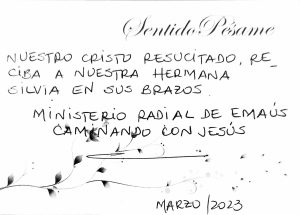 Sentido Pésame
NUESTRO CRISTO RESUCITADO, RE
CIBA A NUESTRA HERMANA
SILVIA EN SUS BRAZOS.
MINISTERIO RADIAL DE EMAÚS
CAMINANDO CON JESÚS
MARZO/2023